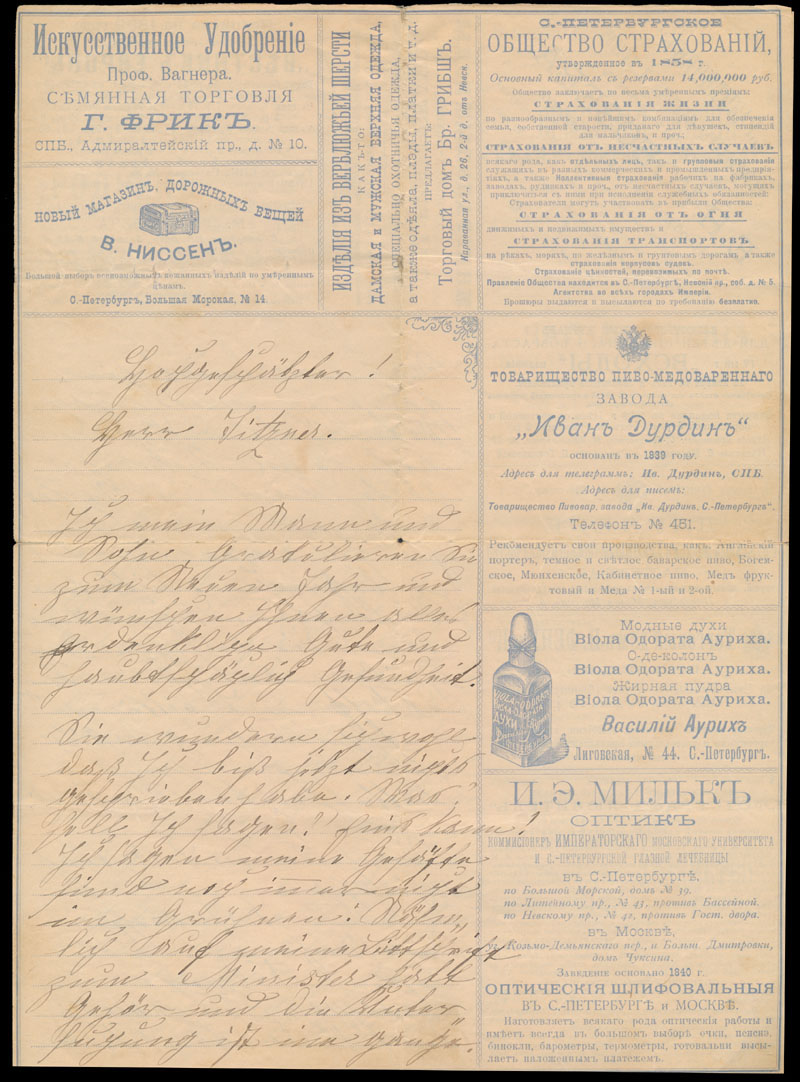 Искусственное Удобреніе
Проф. Вагнера.
СѢМЯННАЯ ТОРГОВЛЯ
Г. ФРИКЪ.
СПБ., Адмиралтейскій пр., д. № 10.
НОВЫЙ МАГАЗИНЪ, ДОРОЖНЫХЪ ВЕЩЕЙ
В. НИССЕНЪ.
Большой выборъ всевозможныхъ кожаныхъ издѣлій по умѣреннымъ
цѣнамъ.
С.-Петербургъ, Большая Морская, № 14.
ИЗДѢЛІЯ ИЗЪ ВЕРБЛЮЖЬЕЙ ШЕРСТИ
КАКЪ-ТО:
ДАМСКАЯ и МУЖСКАЯ ВЕРХНЯЯ ОДЕЖДА,
СПЕЦІАЛЬНО ОХОТНИЧЬЯ ОДЕЖДА,
а также одѣяла, пледы, платки и т. д.
ПРЕДЛАГАЕТЪ:
Торговый домъ Бр. ГРИБШЪ.
Караванная ул., д. 26, 2-ой д. отъ Невск.
С.-ПЕТЕРБУРГСКОЕ
ОБЩЕСТВО СТРАХОВАНІЙ,
утвержденное въ 1858 г.
Основный капиталъ съ резервами 14,000,000 руб.
Общество заключаетъ по весьма умѣреннымъ преміямъ:
СТРАХОВАНІЯ ЖИЗНИ
по разнообразнымъ и новѣйшимъ комбинаціямъ для обезпеченія
семьи, собственной старости, приданаго для дѣвушекъ, стипендій
для мальчиковъ, и проч.;
СТРАХОВАНІЯ ОТЪ НЕСЧАСТНЫХЪ СЛУЧАЕВЪ
всякаго рода, какъ отдѣльныхъ лицъ, такъ и групповыя страхованія
служащихъ въ разныхъ коммерческихъ и промышленныхъ предпріятіяхъ,
а также Коллективныя страхованія рабочихъ на фабрикахъ,
заводахъ, рудникахъ и проч., отъ несчастныхъ случаевъ, могущихъ
приключиться съ ними при исполненіи служебныхъ обязанностей:
Страхователи могутъ участвовать въ прибыли Общества:
СТРАХОВАНІЯ ОТЪ ОГНЯ
движимыхъ и недвижимыхъ имуществъ и
СТРАХОВАНІЯ ТРАНСПОРТОВЪ
на рѣкахъ, моряхъ, по желѣзнымъ и грунтовымъ дорогамъ, а также
страхованія корпусовъ судовъ.
Страхованіе цѣнностей, перевозимыхъ по почтѣ.
Правленіе Общества находится въ С.-Петербургѣ, Невскій пр., соб. д. № 5.
Агентства во всѣхъ городахъ Имперіи.
Брошюры выдаются и высылаются по требованію безплатно.
Hochgeschätzter!
Herr Titzner.
Ich mein Mann und
Sohn Gratulieren Sie
zum Neuen Jahr und
wünschen Ihnen alles
erdenkliche Gute und
haubtsächlich Gesundheit.
Sie wundern sich wohl
daß Ich biß jetzt nichts
geschrieben habe. Was
soll Ich sagen! Eins kann!
Ich sagen meine Gehöfte
sind noch immer nicht
im Grühnen: Nähm
lich auf meine Bittschrift
zum Minister hatt
Gehör und die Unter
suchung ist im gange.
ТОВАРИЩЕСТВО ПИВО-МЕДОВАРЕННАГО
ЗАВОДА
„Иванъ Дурдинъ“
ОСНОВАНЪ ВЪ 1839 ГОДУ.
Адресъ для телеграммъ: Ив. Дурдинъ, СПБ.
Адресъ для писемъ:
Товарищество Пивовар. завода „Ив. Дурдинъ, С.-Петербургъ“.
Телефонъ № 451.
Рекомендуетъ свои производства, какъ: Англійскій
портеръ, темное и свѣтлое баварское пиво, Богемское,
Мюнхенское, Кабинетное пиво, Медъ фруктовый
и Меда № 1-ый и 2-ой.
Модные духи
Віола Одората Ауриха.
О-де-колонъ
Віола Одората Ауриха.
Жирная пудра
Віола Одората Ауриха.
Василій Аурихъ
Лиговская, № 44. С.-Петербургъ.
И. Э. МИЛЬКЪ
ОПТИКЪ
КОММИСІОНЕР ИМПЕРАТОРСКАГО МОСКОВСКАГО УНИВЕРСИТЕТА
И С.-ПЕТЕРБУРГСКОЙ ГЛАЗНОЙ ЛѢЧЕБНИЦЫ
ВЪ С.-Петербургѣ,
по Большой Морской, домъ № 39.
по Литейному пр., № 43, противъ Бассейной.
по Невскому пр., № 42, противъ Гост. двора.
ВЪ МОСКВѢ,
уг. Козьмо-Демьянскаго пер., и Больш. Дмитровки,
домъ Чуксина.
ЗАВЕДЕНІЕ ОСНОВАНО 1840 г.
ОПТИЧЕСКІЯ ШЛИФОВАЛЬНЫЯ
ВЪ С.-ПЕТЕРБУРГѢ и МОСКВѢ.
Изготовляетъ всякаго рода оптическія работы и
имѣетъ всегда въ большомъ выборѣ очки, пенсне,
бинокли, барометры, термометры, готовальни высылаетъ
наложеннымъ платежомъ.